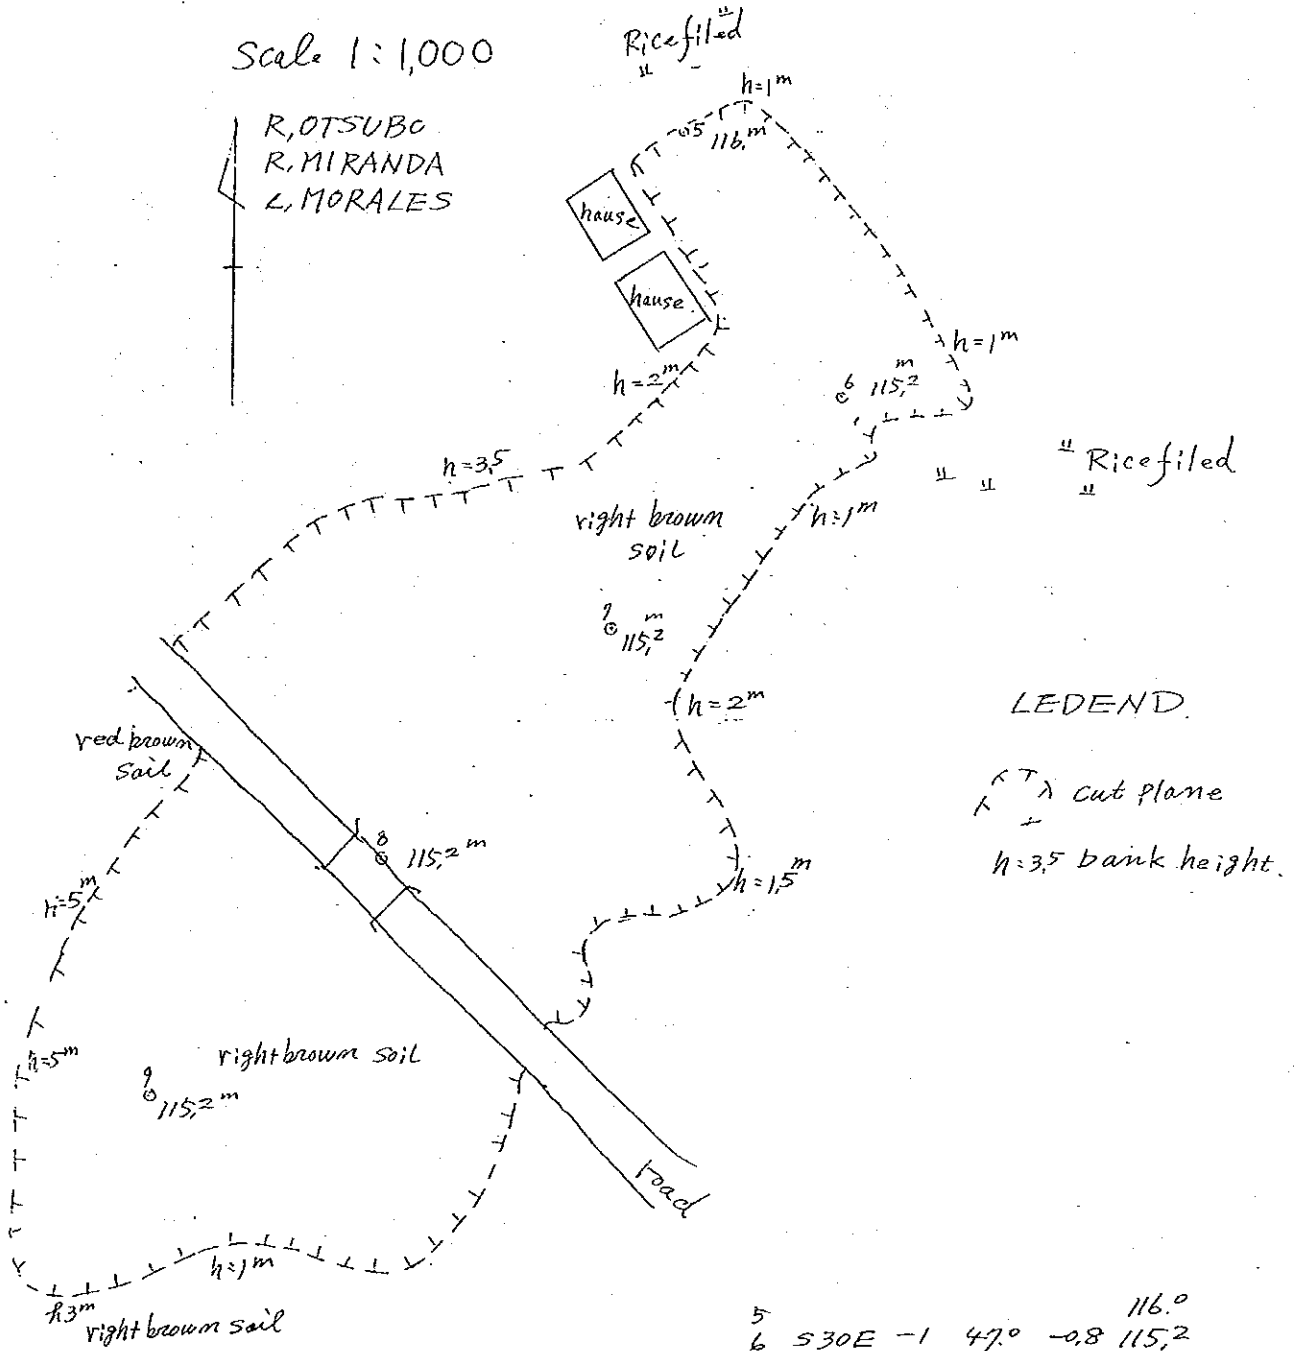 Scale 1:1,000
Ricefiled
R,OTSUBO
R.MIRANDA
L,MORALES
h=1m
5 116.m
hause
hause
h=1m
h=2m
6 115,2m
h=3,5
Ricefiled
right brown
soil
h=1m
7 115,2m
h=2m
LEDEND.
red brown
soil
cut plane
8 115,2m
h=3,5 bank height.
h=5m
h=1,5m
h=5m
right brown soil
9 115,2m
road
h=1m
h3m
right brown soil
5 116.0
6 S30E -1 47.0 -0,8 115,2